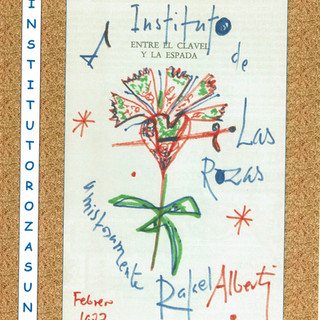 INSTITUTOROZASUN
Al Instituto
ENTRE EL CLAVEL
Y LA ESPADA
de
Las
Rozas
amistosamente
Rafael Alberti
Febrero
1977